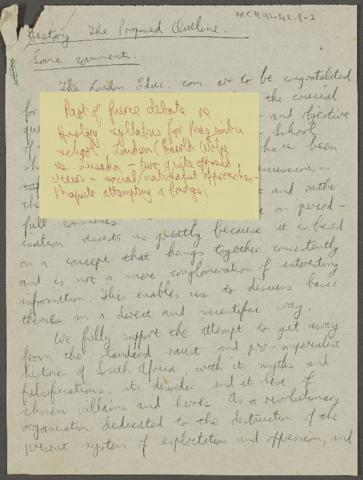 MCH91-42.8-2
History The Proposed Outline.
Some comments.
The London Educ. com. are to be congratulated
for
the crucial
que
and objective
School
sh
have been
discussion in
the
and rather
full comments.
on period-
isation assists us greatly because it is based
on a concept that hangs together consistently
and is not a mere conglomeration of interesting
information. This enables us to discuss basic
themes in a direct and scientific way.
We fully support the attempt to get away
from the standard racist and pro-imperialist
histories of South Africa, with its myths and
falsifications, its and its of
chosen villains and heroes. As a revolutionary
organisation dedicated to the destruction of the
present system of exploitation and oppression, and
Part of fierce debate re
History syllabus for Mazimbu
school. London (Harold Wolpe)
vs Lusaka – two quite opposed
views – social/nationalist approaches –
Maputo attempting a bridge.